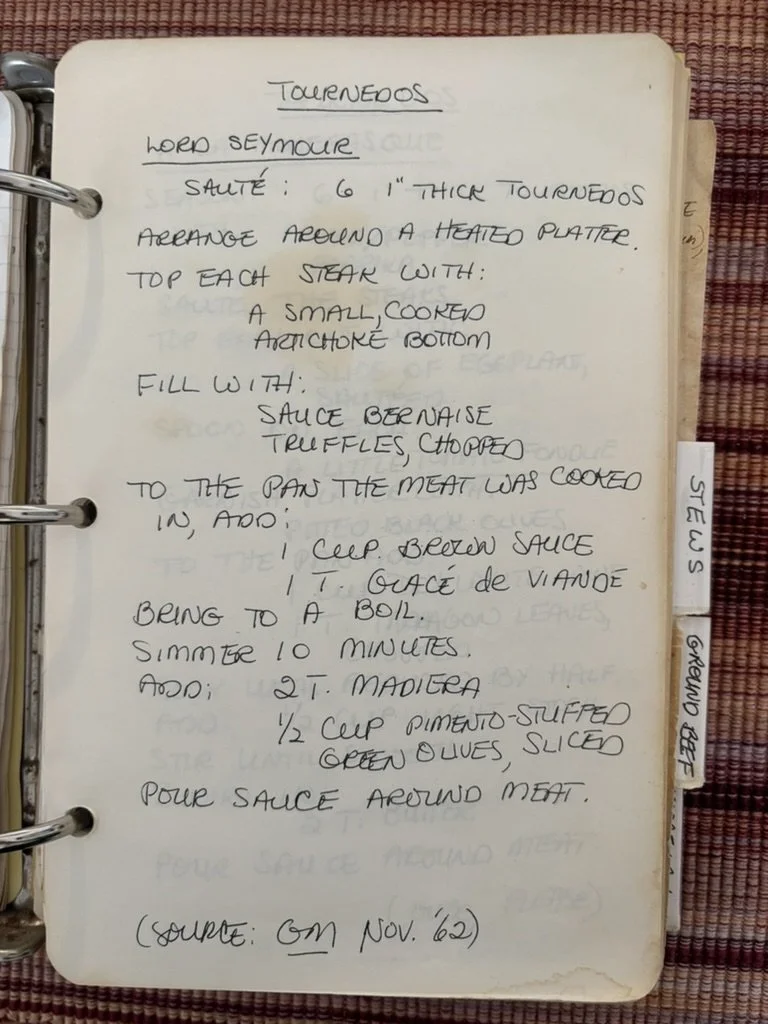 TOURNEDOS
LORD SEYMOUR
SAUTÉ: 6 1" THICK TOURNEDOS
ARRANGE AROUND A HEATED PLATTER.
TOP EACH STEAK WITH:
A SMALL, COOKED
ARTICHOKE BOTTOM
FILL WITH:
SAUCE BERNAISE
TRUFFLES, CHOPPED
TO THE PAN THE MEAT WAS COOKED
IN, ADD:
1 CUP BROWN SAUCE
1 T. GLACÉ de VIANDE
BRING TO A BOIL.
SIMMER 10 MINUTES.
ADD: 2 T. MADIERA
1/2 CUP PIMENTO-STUFFED
GREEN OLIVES, SLICED
POUR SAUCE AROUND MEAT.
(SOURCE: GM NOV. '62)
STEWS
GROUND BEEF